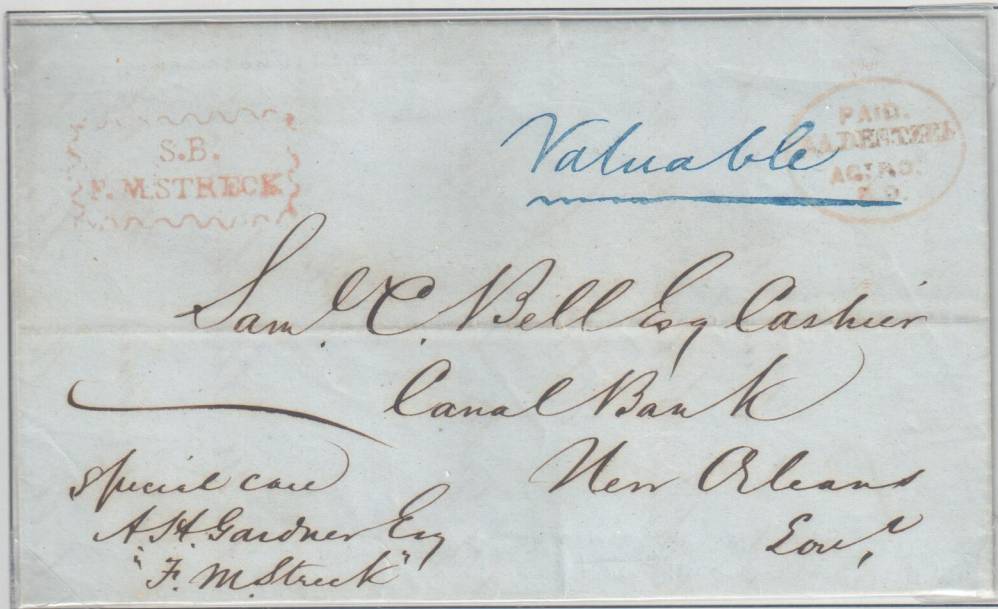 S.B.
F. M. STRECK
Valuable
PAID.
Saml. C. Bell Esq Cashier
Canal Bank
New Orleans
Loua,
Special care
A. H. Gardner Esq
"F. M. Streck"